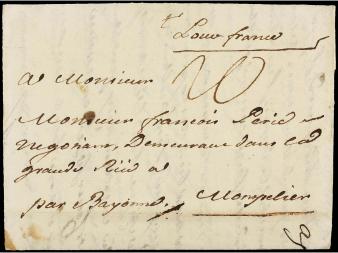 Pour france
a Monsieur
Monsieur françois Perie
negociant, Demeurant dans la
grande Rüe a
par Bayonne. Monpelier